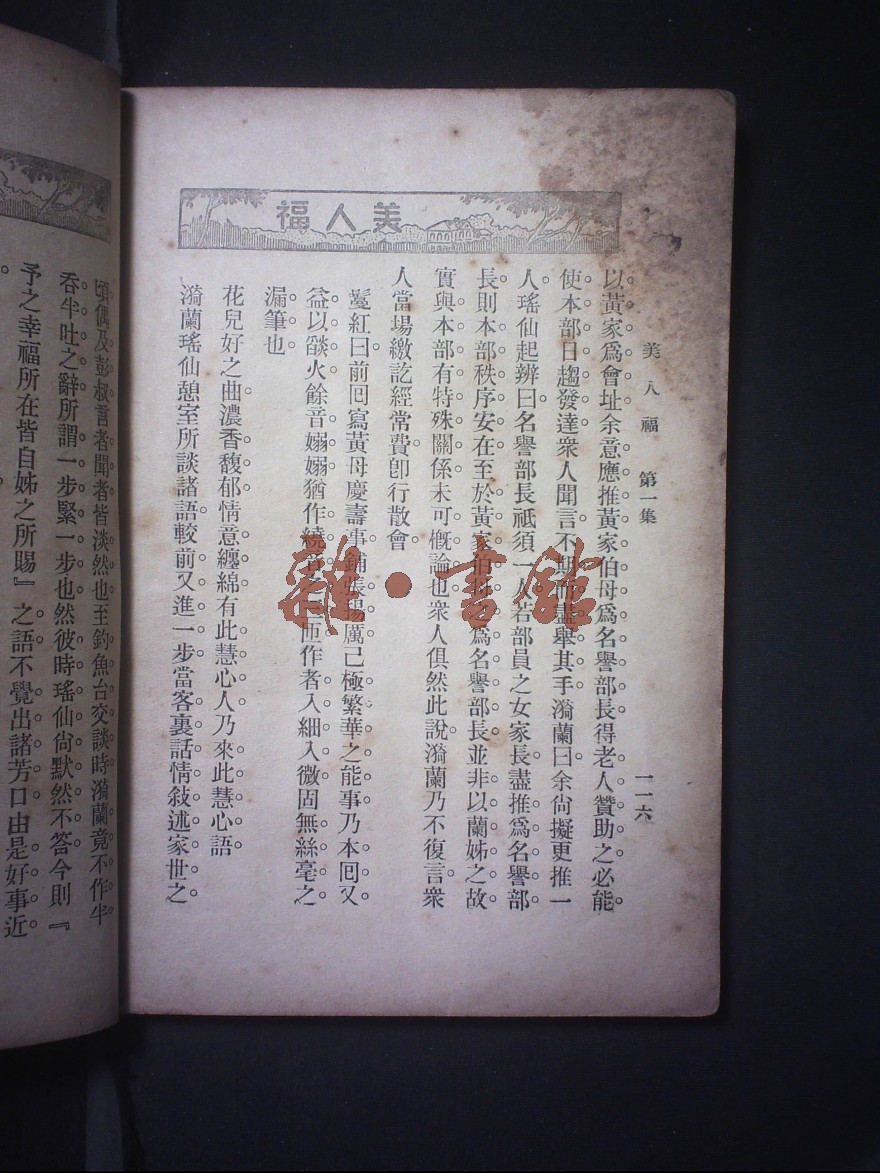 美人福
美人福　第一集
一一六
以黃家爲會址余意應推黃家伯母爲名譽部長得老人贊助之必能
使本部日趨發達衆人聞言不期而盡舉其手漪蘭曰余尙擬更推一
人瑤仙起辨曰名譽部長祗須一人若部員之女家長盡推爲名譽部
長則本部秩序安在至於黃家伯母爲名譽部長並非以蘭姊之故
實與本部有特殊關係未可概論也衆人俱然此說漪蘭乃不復言衆
人當場繳訖經常費卽行散會
鬘紅曰前囘寫黃母慶壽事鋪張揚厲已極繁華之能事乃本囘又
益以燄火餘音嫋嫋猶作繞匝作者入細入微固無絲毫之
漏筆也
花兒好之曲濃香馥郁情意纏綿有此慧心人乃來此慧心語
漪蘭瑤仙憩室所談諸語較前又進一步當客裏話情敍述家世之
頃偶及彭叔言者聞者皆淡然也至釣魚台交談時漪蘭竟不作半
吞半吐之辭所謂一步緊一步也然彼時瑤仙尙默然不答今則『
予之幸福所在皆自姊之所賜』之語不覺出諸芳口由是好事近
雜·書館